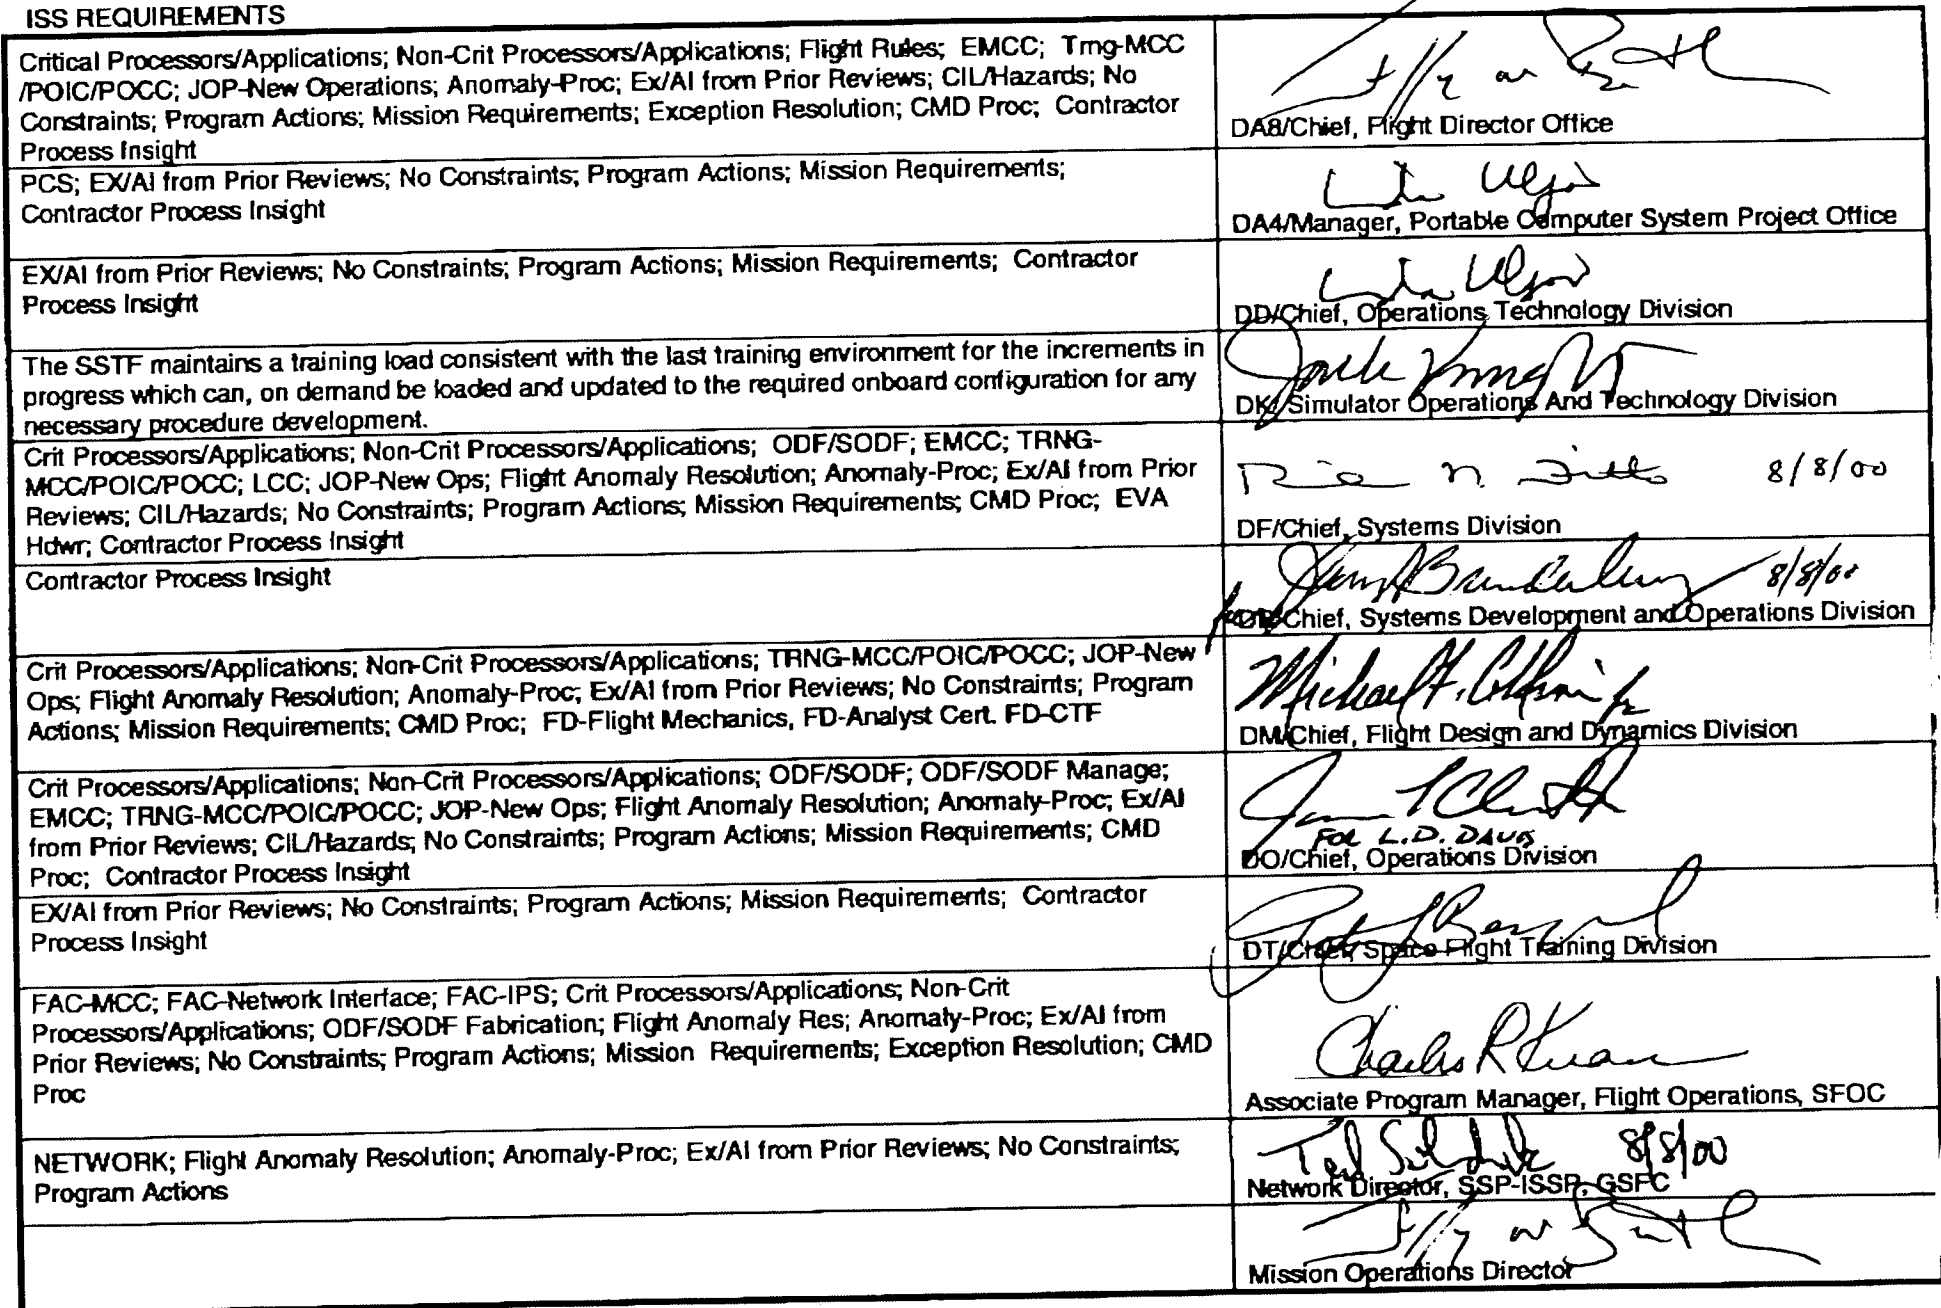 ISS REQUIREMENTS
Critical Processors/Applications; Non-Crit Processors/Applications; Flight Rules; EMCC; Trng-MCC
/POIC/POCC; JOP-New Operations; Anomaly-Proc; Ex/AI from Prior Reviews; CIL/Hazards; No
Constraints; Program Actions; Mission Requirements; Exception Resolution; CMD Proc; Contractor
Process Insight
DA8/Chief, Flight Director Office
PCS; EX/AI from Prior Reviews; No Constraints; Program Actions; Mission Requirements;
Contractor Process Insight
DA4/Manager, Portable Computer System Project Office
EX/AI from Prior Reviews; No Constraints; Program Actions; Mission Requirements; Contractor
Process Insight
DD/Chief, Operations Technology Division
The SSTF maintains a training load consistent with the last training environment for the increments in
progress which can, on demand be loaded and updated to the required onboard configuration for any
necessary procedure development.
Jack Knight
DK/ Simulator Operations And Technology Division
Crit Processors/Applications; Non-Crit Processors/Applications; ODF/SODF; EMCC; TRNG-
MCC/POIC/POCC; LCC; JOP-New Ops; Flight Anomaly Resolution; Anomaly-Proc; Ex/AI from Prior
Reviews; CIL/Hazards; No Constraints; Program Actions; Mission Requirements; CMD Proc; EVA
Hdwr; Contractor Process Insight
8/8/00
DF/Chief, Systems Division
Contractor Process Insight
8/8/00
Chief, Systems Development and Operations Division
Crit Processors/Applications; Non-Crit Processors/Applications; TRNG-MCC/POIC/POCC; JOP-New
Ops; Flight Anomaly Resolution; Anomaly-Proc; Ex/AI from Prior Reviews; No Constraints; Program
Actions; Mission Requirements; CMD Proc; FD-Flight Mechanics, FD-Analyst Cert. FD-CTF
Michael F.
DM/Chief, Flight Design and Dynamics Division
Crit Processors/Applications; Non-Crit Processors/Applications; ODF/SODF; ODF/SODF Manage;
EMCC; TRNG-MCC/POIC/POCC; JOP-New Ops; Flight Anomaly Resolution; Anomaly-Proc; Ex/AI
from Prior Reviews; CIL/Hazards; No Constraints; Program Actions; Mission Requirements; CMD
Proc; Contractor Process Insight
FOR L.D. DAVIS
DO/Chief, Operations Division
EX/AI from Prior Reviews; No Constraints; Program Actions; Mission Requirements; Contractor
Process Insight
DT/Chief, Space Flight Training Division
FAC-MCC; FAC-Network Interface; FAC-IPS; Crit Processors/Applications; Non-Crit
Processors/Applications; ODF/SODF Fabrication; Flight Anomaly Res; Anomaly-Proc; Ex/AI from
Prior Reviews; No Constraints; Program Actions; Mission Requirements; Exception Resolution; CMD
Proc
Charles R
Associate Program Manager, Flight Operations, SFOC
NETWORK; Flight Anomaly Resolution; Anomaly-Proc; Ex/AI from Prior Reviews; No Constraints;
Program Actions
Ted 8/8/00
Network Director, SSP-ISSP, GSFC
Mission Operations Director